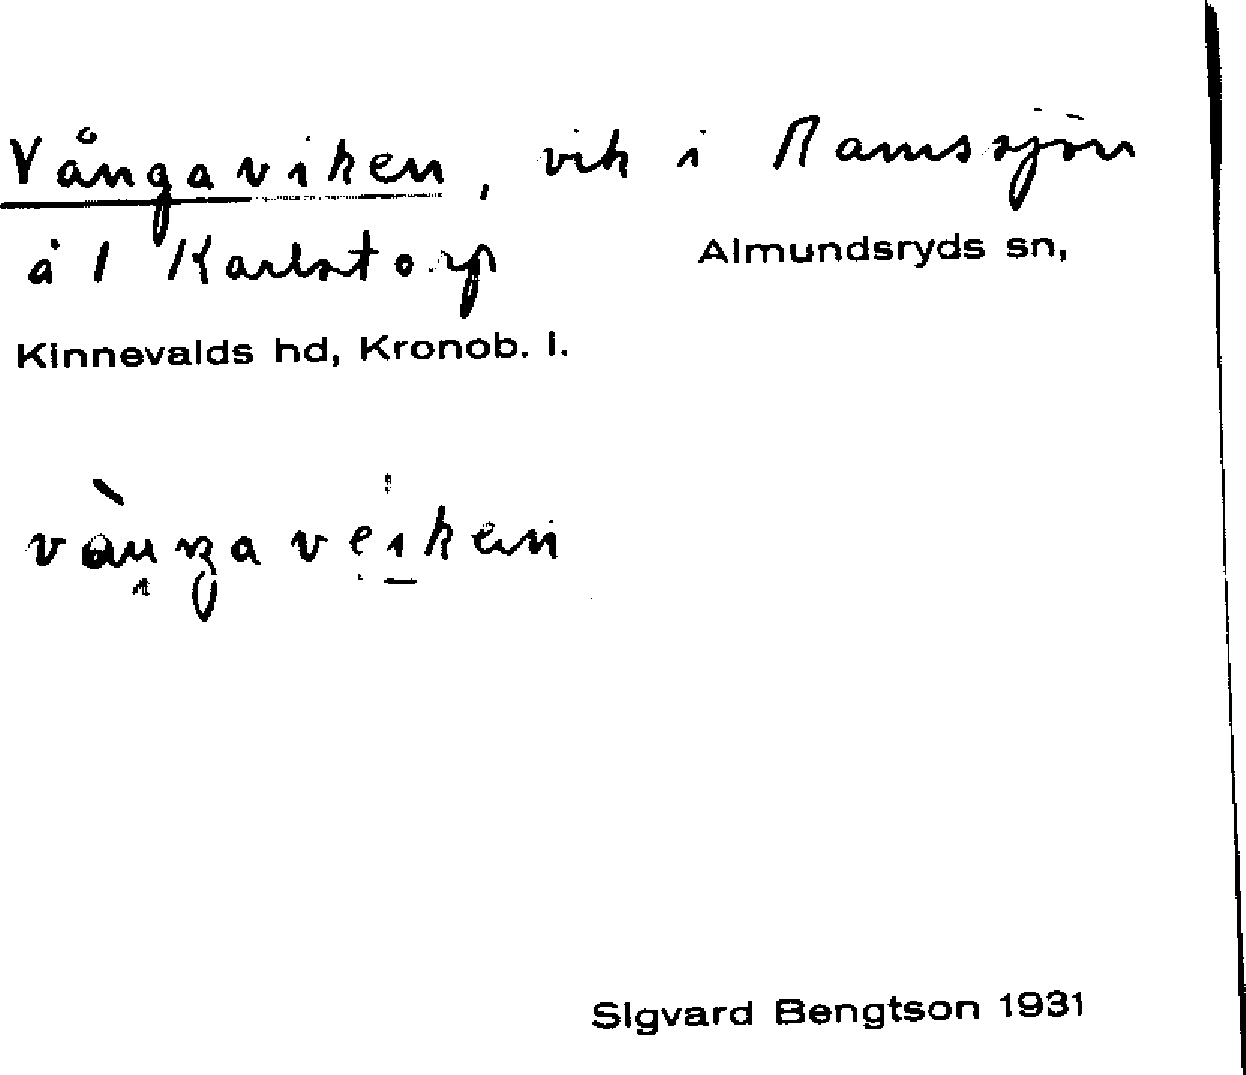 Vångaviken, vik i Ramssjön
å 1 Karlstorp Almundsryds sn,
Kinnevalds hd, Kronob. l.
Sigvard Bengtson 1931